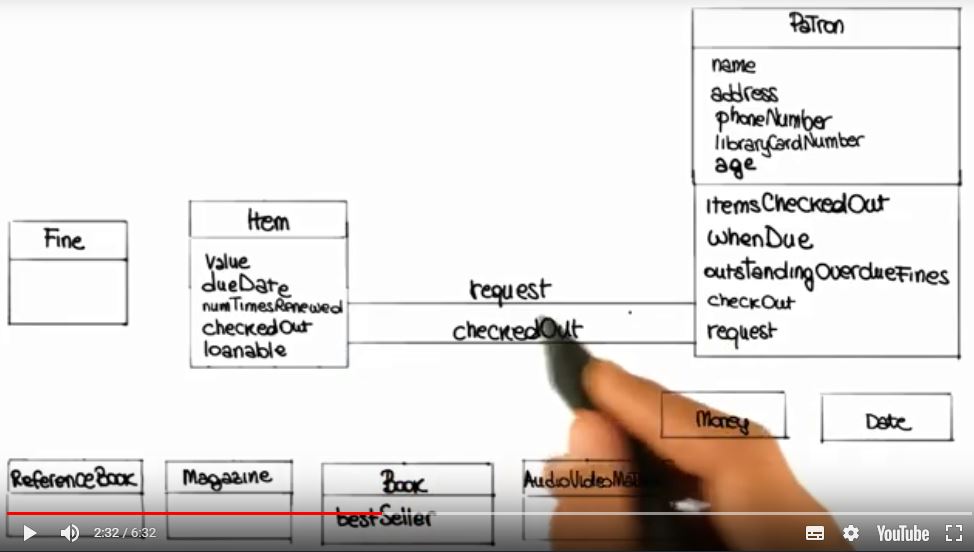 Patron
name
address
phoneNumber
libraryCardNumber
age
itemsCheckedOut
whenDue
outstandingOverdueFines
checkOut
request
Fine
Item
value
dueDate
numTimesRenewed
checkedOut
loanable
request
checkedOut
Money
Date
ReferenceBook
Magazine
Book
bestSeller
2:32 / 6:32
YouTube